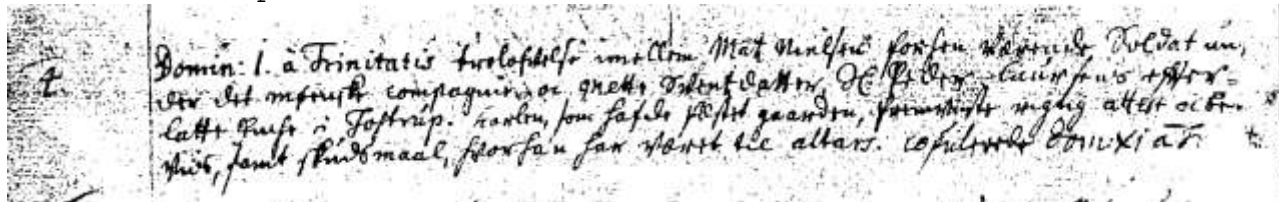 4. Domin: 1. à Trinitatis troloffvelse imellem Matz Nielsen forhen værende Soldat un,
der det compagnie, oc Grette Svendsdatter, Sl. Peder Laursens effter=
latte Enche i Tostrup. karlen, som hafde fæstet gaarden, fremviiste rigtig attest oc be-
viis, samt skudsmaal, hvor han har været til altars. copulerede Dom: XI à T.